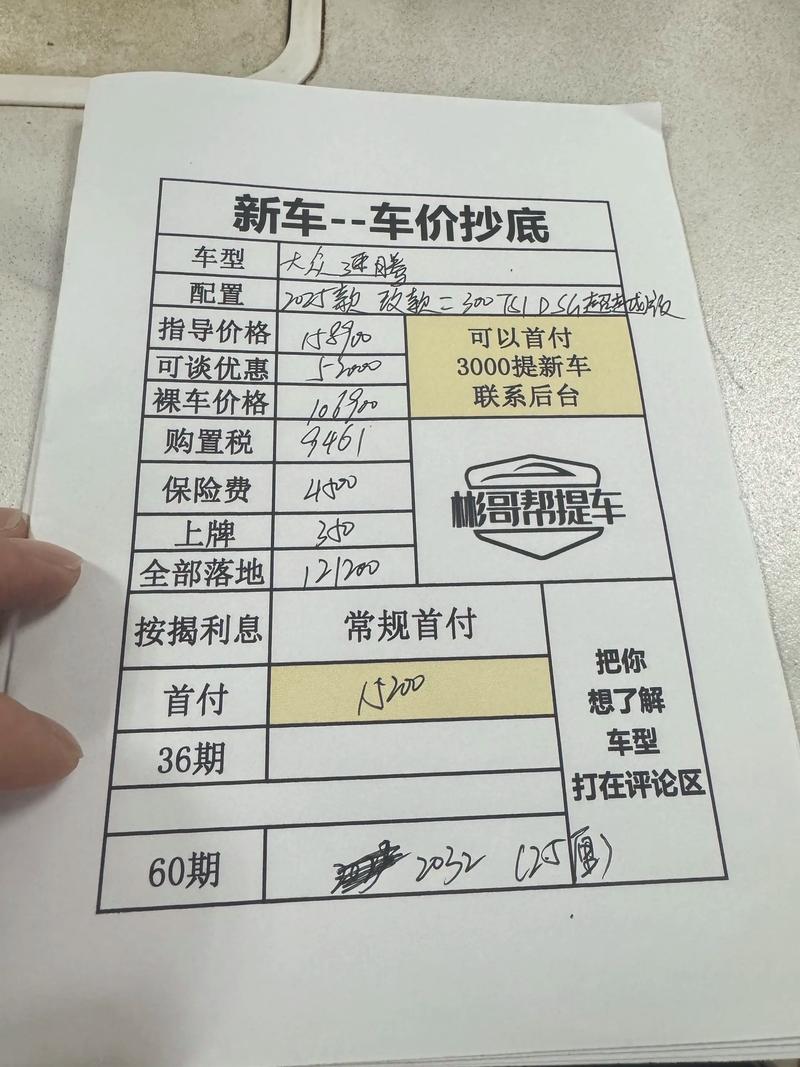 新车--车价抄底
车型 大众速腾
配置 2025款 改款二 300TSI DSG超越版
指导价格 158900
可谈优惠 52000
裸车价格 106900
可以首付
3000提新车
联系后台
购置税 9461
保险费 4500
上牌 350
全部落地 121200
彬哥帮提车
按揭利息 常规首付
首付 15200
36期
60期 2032 (25厘)
把你
想了解
车型
打在评论区